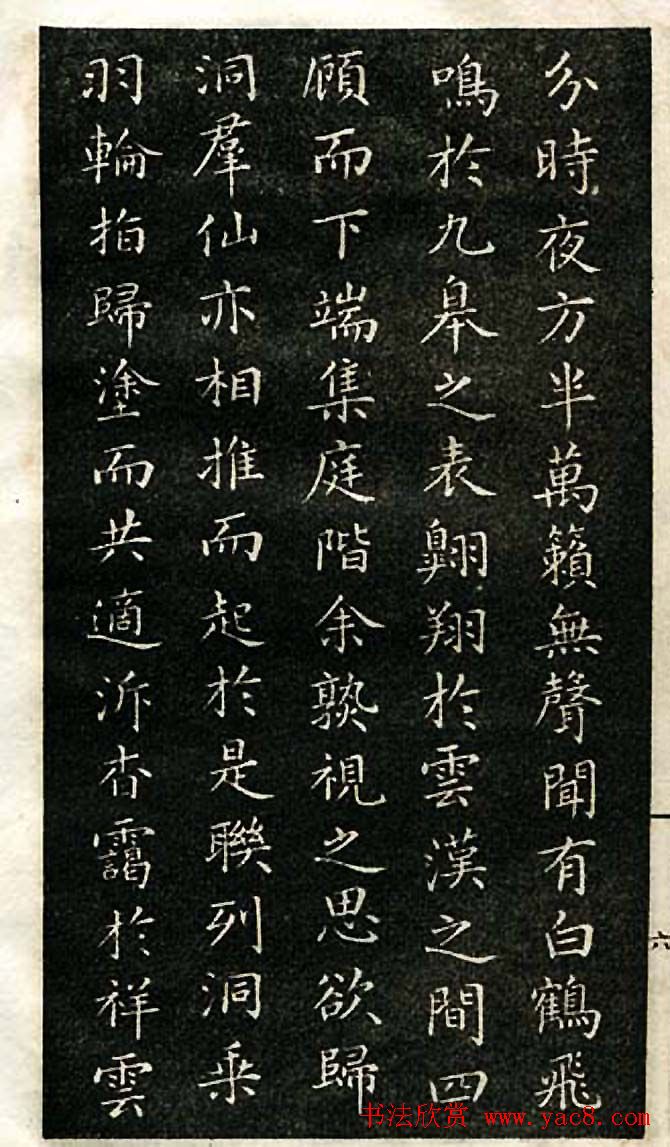 分時夜方半萬籟無聲聞有白鶴飛
鳴於九皋之表翺翔於雲漢之間四
顧而下端集庭階余熟視之思欲歸
洞羣仙亦相推而起於是聯列洞乗
羽輪指歸塗而共適泝杳靄於祥雲
六
书法欣赏 www.yac8.com